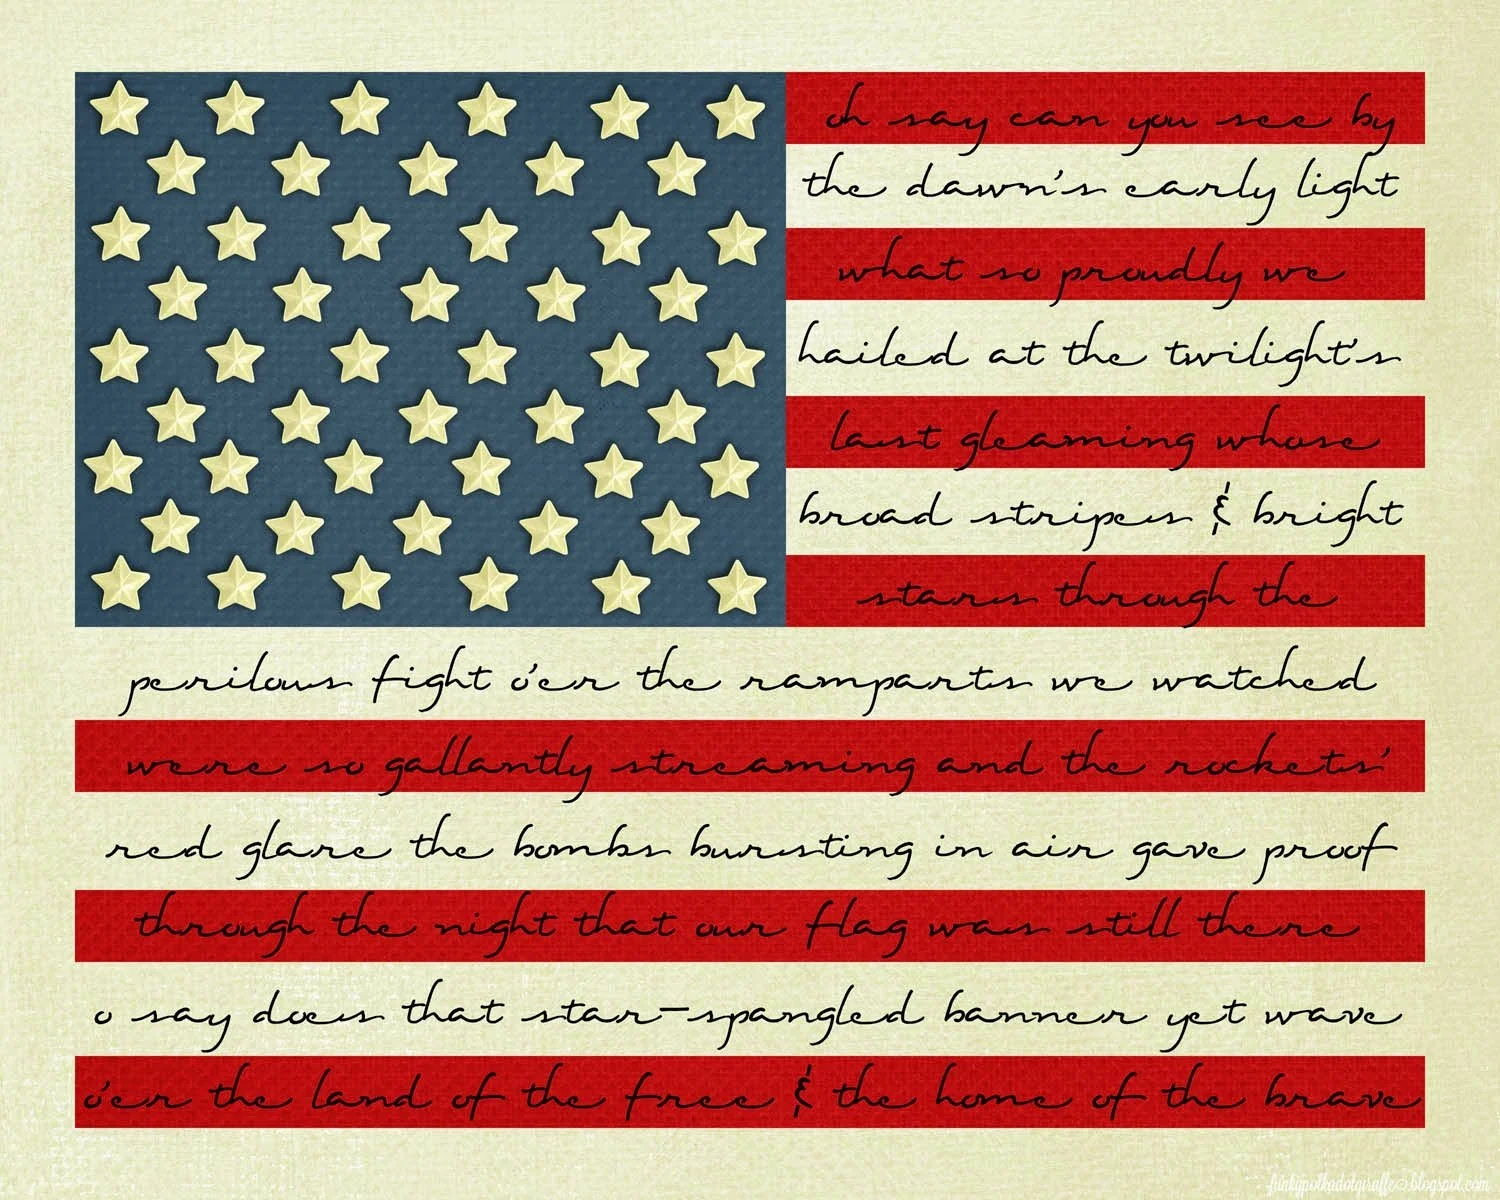 oh say can you see by
the dawn's early light
what so proudly we
hailed at the twilight's
last gleaming whose
broad stripes & bright
stars through the
perilous fight o'er the ramparts we watched
were so gallantly streaming and the rockets'
red glare the bombs bursting in air gave proof
through the night that our flag was still there
o say does that star-spangled banner yet wave
o'er the land of the free & the home of the brave
funkypolkadotgiraffe@blogspot.com